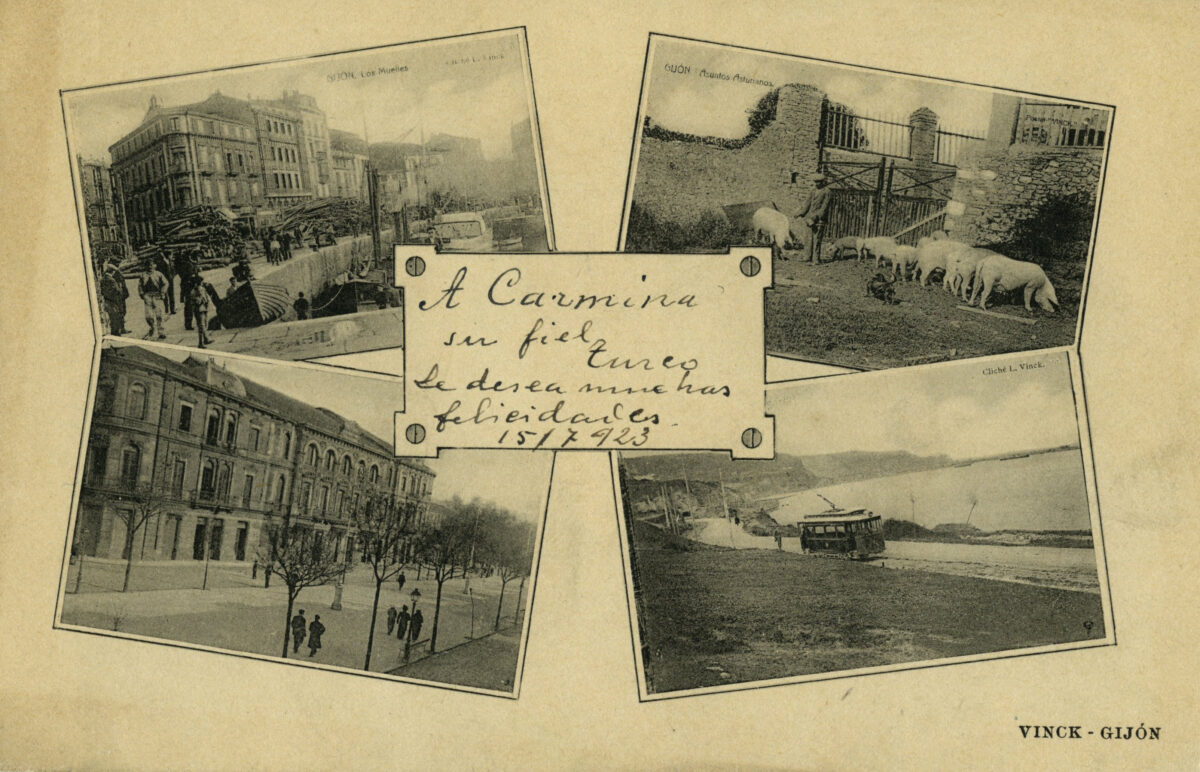 GIJÓN. Los Muelles
Cliché L. Vinck.
GIJÓN Asuntos Asturianos.
A Carmina
su fiel
turco
Le desea muchas
felicidades.
15/7 923
Cliché L. Vinck.
VINCK - GIJÓN